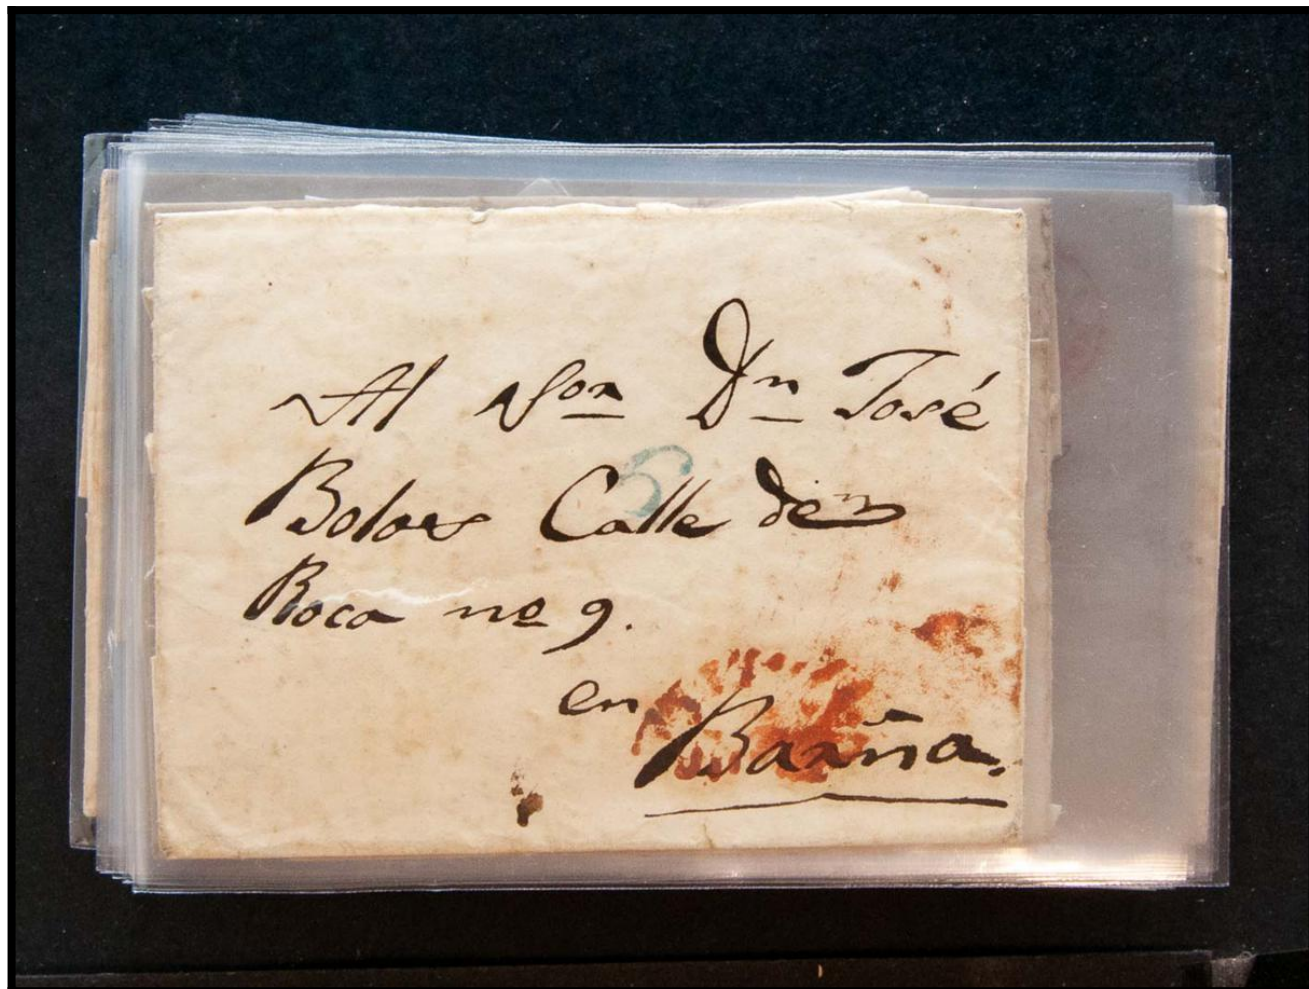 Al Sor Dn José
Bolars Calle den
Roca no 9.
6
en
Barña.